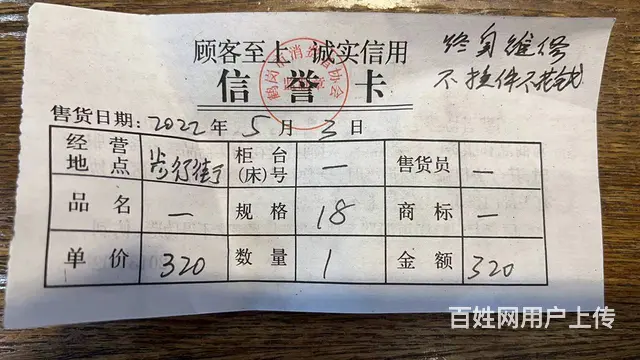 顾客至上 诚实信用
终身维修
不换件不花钱
信誉卡
鹤岗市消费者协会
售货日期：2022年5月3日
经营地点 步行街 柜台(床)号 — 售货员 —
品名 — 规格 18 商标 —
单价 320 数量 1 金额 320
百姓网用户上传